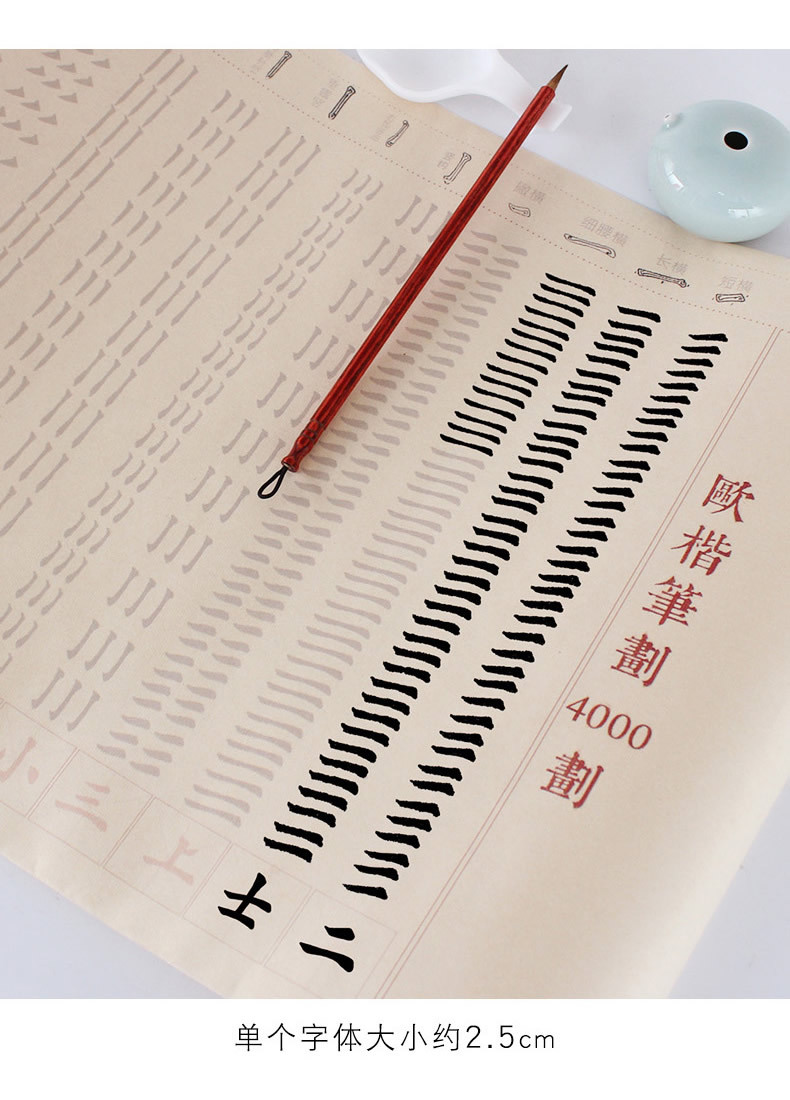 歐楷筆劃4000劃
短横
长横
细腰横
二
士
上
三
小
单个字体大小约2.5cm